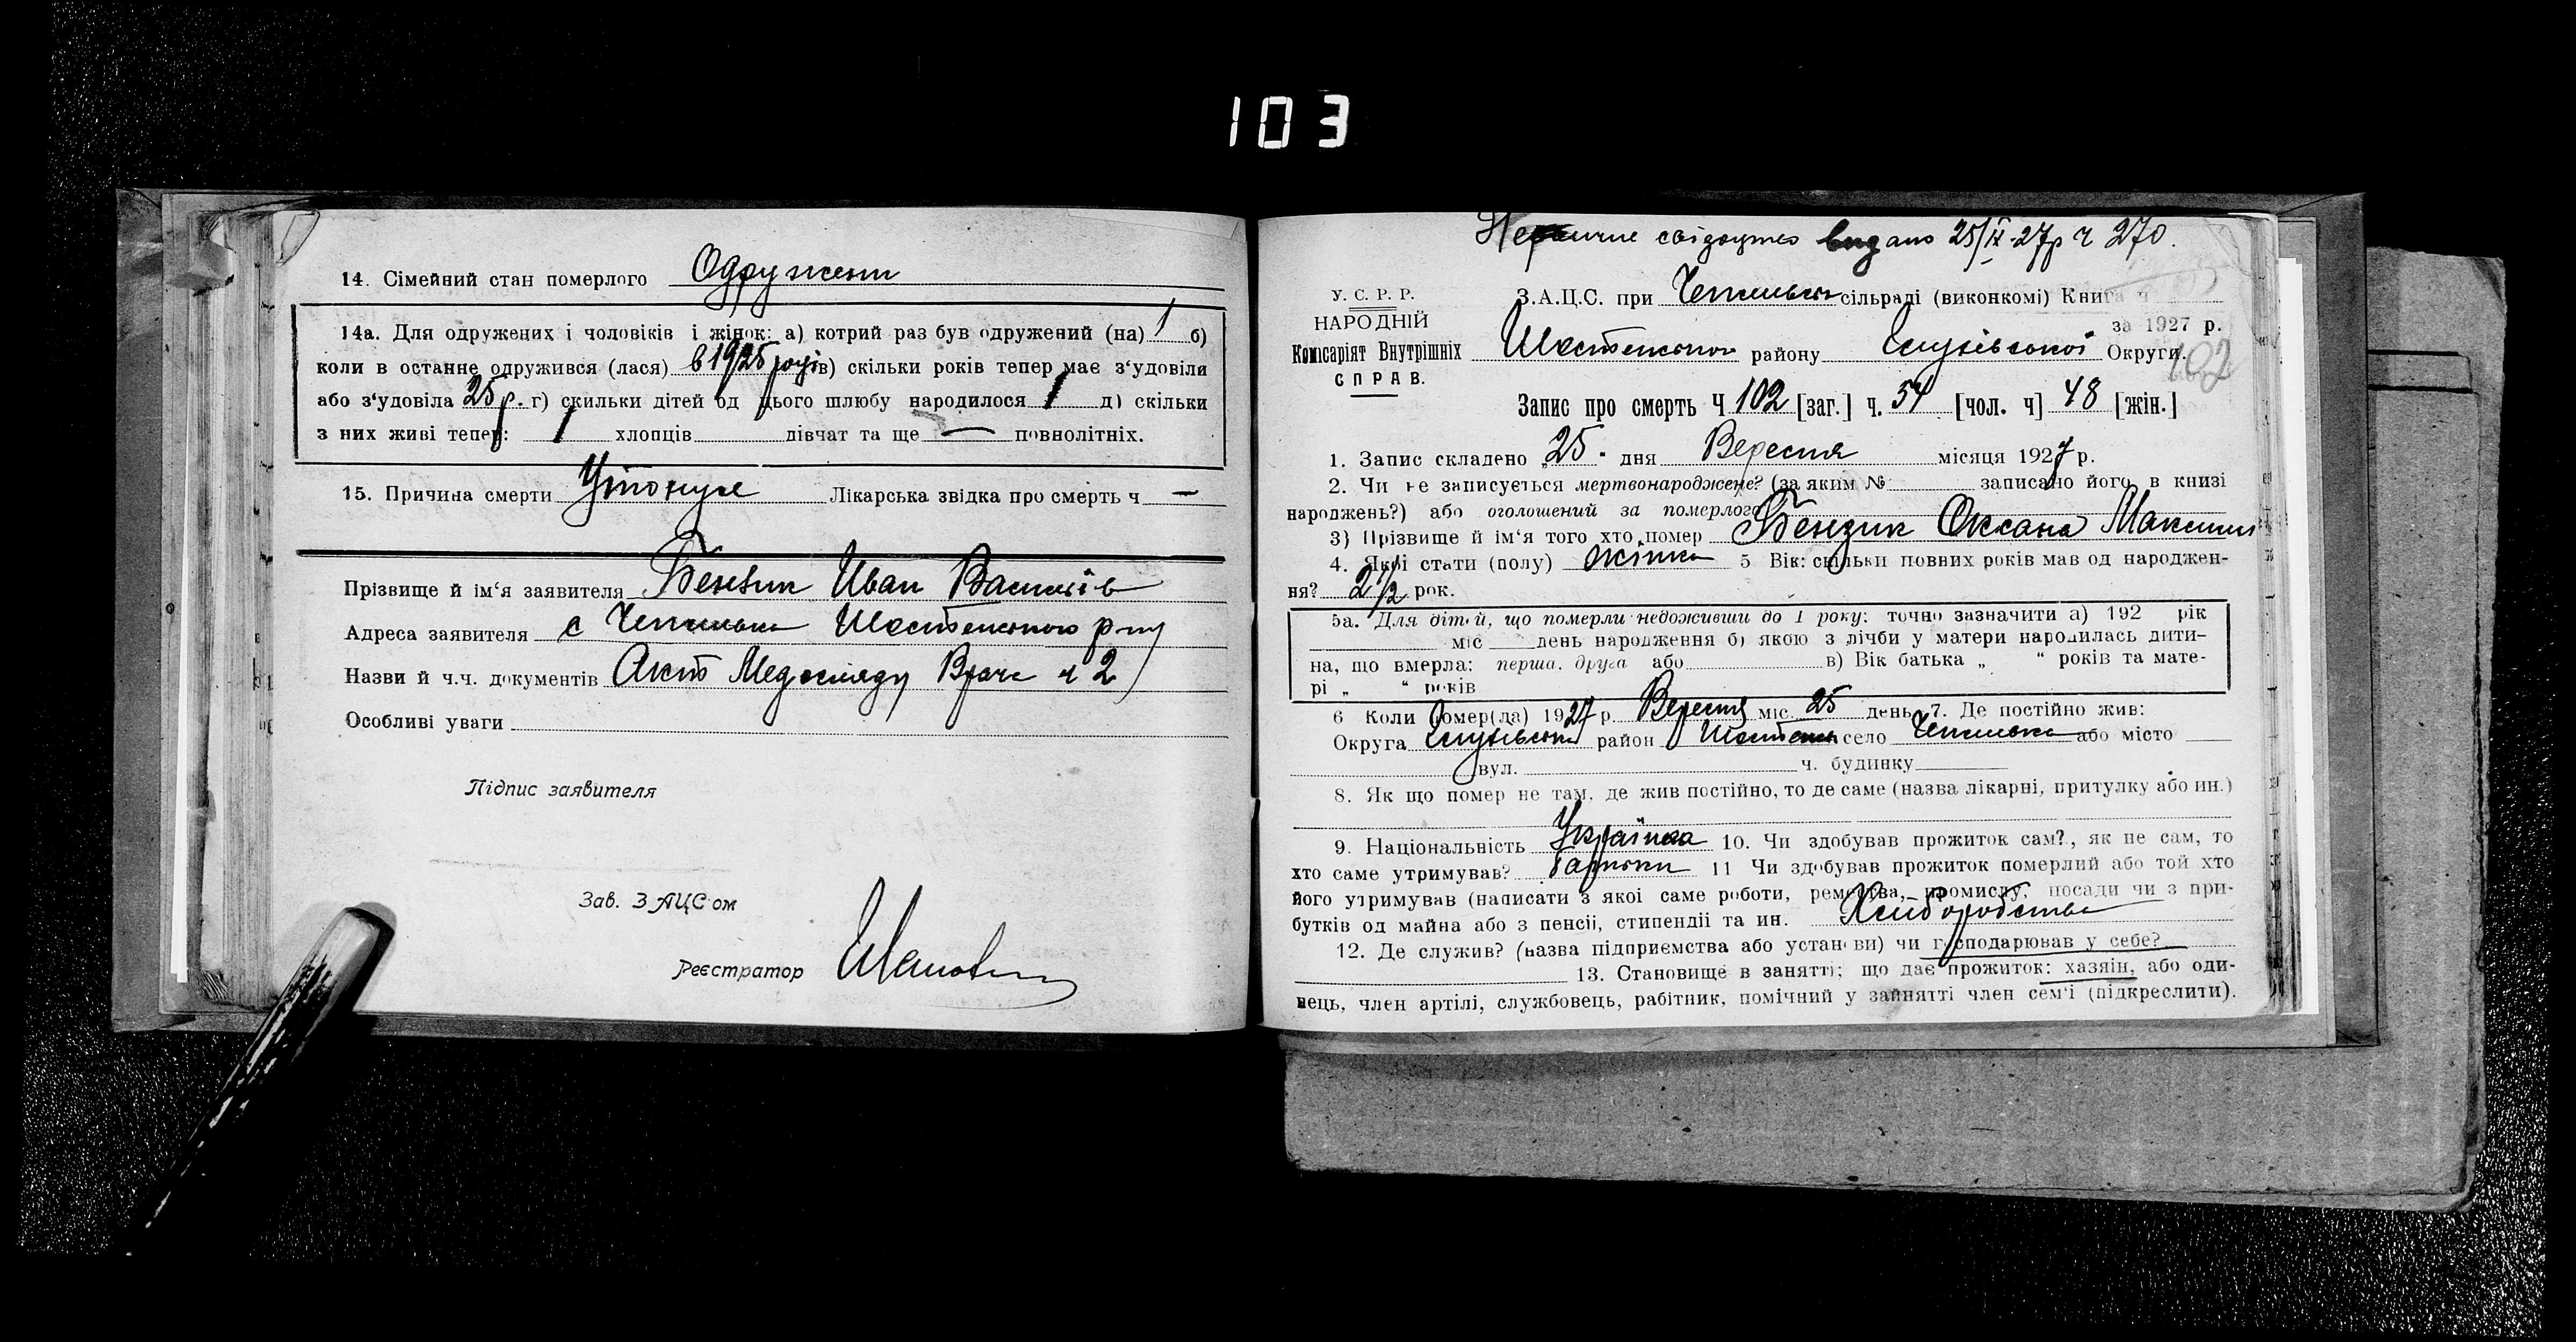 103
14. Сімейний стан померлого Одружени
14а. Для одружених і чоловіків і жінок: а) котрий раз був одружений (на) 1 б)
коли в останне одружився (лася) в 1925 році в) скільки років тепер має з‘удовіли
або з‘удовіла 25 р. г) скильки дітей од цього шлюбу народилося 1 д) скільки
з них живі тепер: 1 хлопців дівчат та ще — повнолітніх.
15. Причина смерти Утонула Лікарська звідка про смерть ч —
Прізвище й ім‘я заявителя Бензик Иван Василів
Адреса заявителя с Чепильки Шостенського р-ну
Назви й ч.ч. документів Акт Медогляду Врача ч 2
Особливі уваги
Підпис заявителя
Зав. ЗАЦС‘ом
Реєстратор
свідоцтво видано 25/IX-27р ч 270.
У. С. Р. Р.
НАРОДНІЙ
Комісаріят Внутрішніх
СПРАВ.
З.А.Ц.С. при сільраді (виконкомі) Книга ч
за 1927 р.
Шостенського району Глухівської Округи.
102
Запис про смерть Ч 102 [заг.] ч. 54 [чол. ч] 48 [жін.]
1. Запис складено „25“ дня Вересня місяця 1927 р.
2. Чи не записується мертвонароджене? (за яким № записано його в книзі
народжень?) або оголошений за померлого
3) Прізвище й ім‘я того хто помер Бензик Оксана Максим
4. Якої стати (полу) жінка 5 Вік: скільки повних років мав од народжен-
ня? 2 1/2 рок.
5а. Для дітей, що померли недоживши до 1 року: точно зазначити а) 192 рік
міс день народження б) якою з лічби у матери народилась дити-
на, що вмерла: перша, друга або в) Вік батька „ “ років та мате-
рі „ “ років
6 Коли помер(ла) 1927 р. Вересня міс. 25 день 7. Де постійно жив:
Округа Глухівська район Шостенськ село або місто
вул. ч. будинку
8. Як що помер не там, де жив постійно, то де саме (назва лікарні, притулку або ин.)
9. Національність Українка 10. Чи здобував прожиток сам?, як не сам, то
хто саме утримував? батьки 11 Чи здобував прожиток померлий або той хто
його утримував (написати з якої саме роботи, ремества, промислу, посади чи з при-
бутків од майна або з пенсії, стипендії та ин. Хліборобство
12. Де служив? (назва підприємства або установи) чи господарював у себе?
13. Становище в занятті; що дає прожиток: хазяїн, або оди-
нець, член артілі, службовець, рабітник, помічний у зайнятті член сем‘ї (підкреслити).